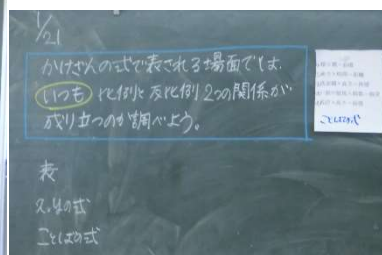 1/21
かけざんの式で表される場面では、
いつも 比例と 反比例 2つの関係が
成り立つのか調べよう。
表
x、yの式
ことばの式
ことばの式